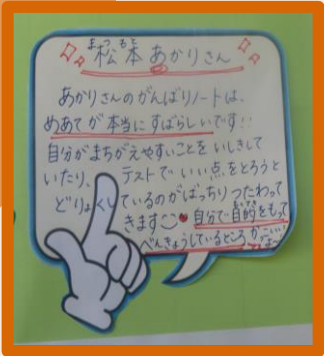 まつもと
松本 あかりさん
あかりさんのがんばりノートは、
めあてが本当にすばらしいです!!
自分がまちがえやすいことをいしきして
いたり、テストでいい点をとろうと
どりょくしているのがばっちりつたわって
きます 自分で目的をもって
べんきょうしているところ かっこいい